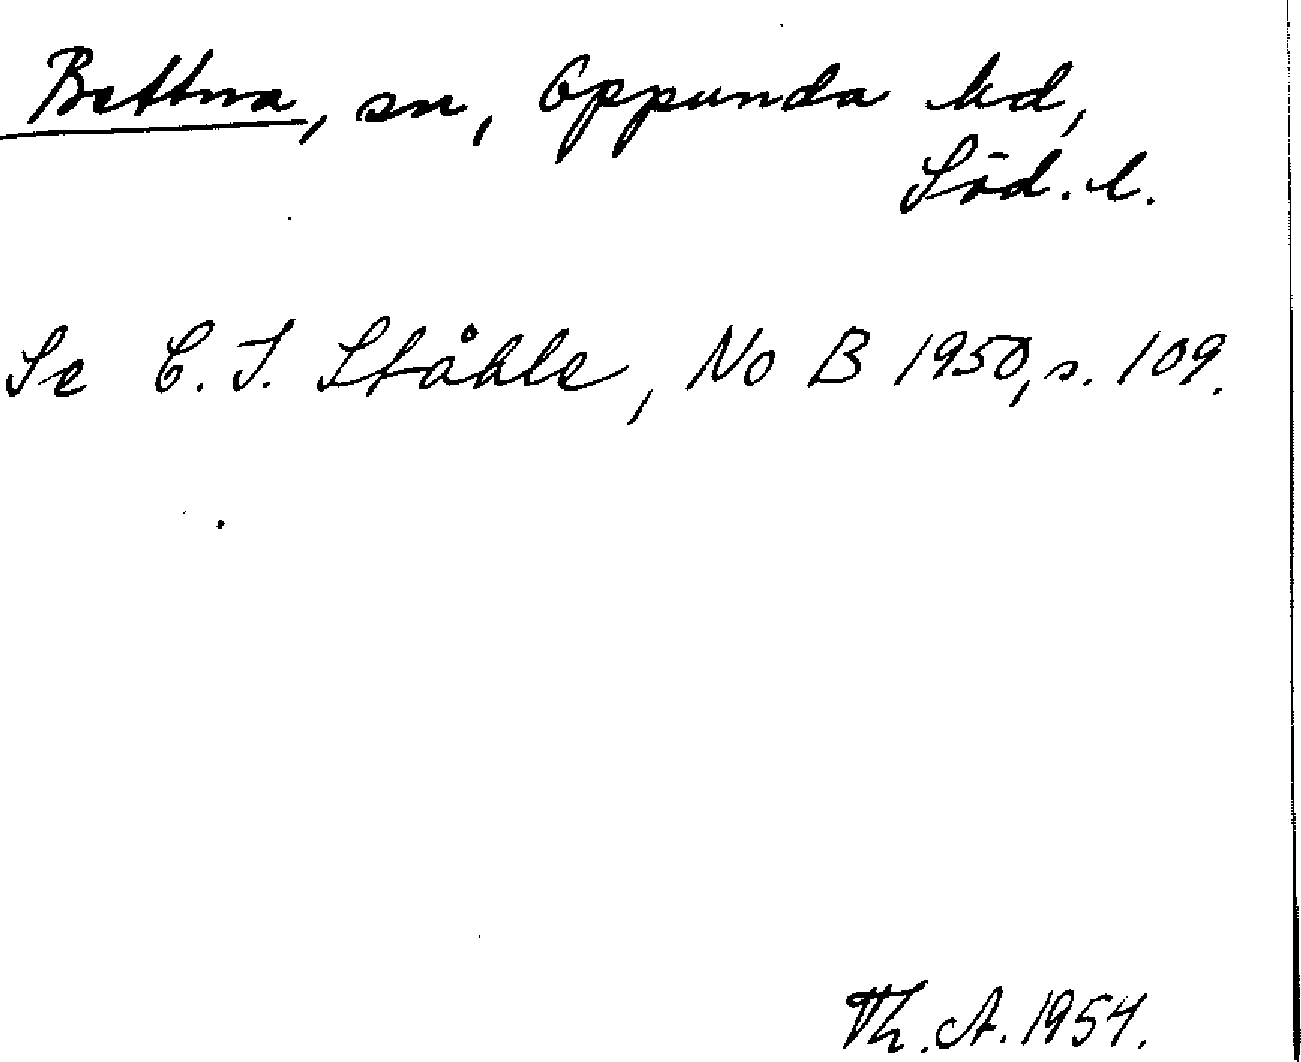 Bettna, sn, Oppunda hd,
Söd. l.
Se C. I. Ståhle, No B 1950, s. 109.
Th. A. 1954.